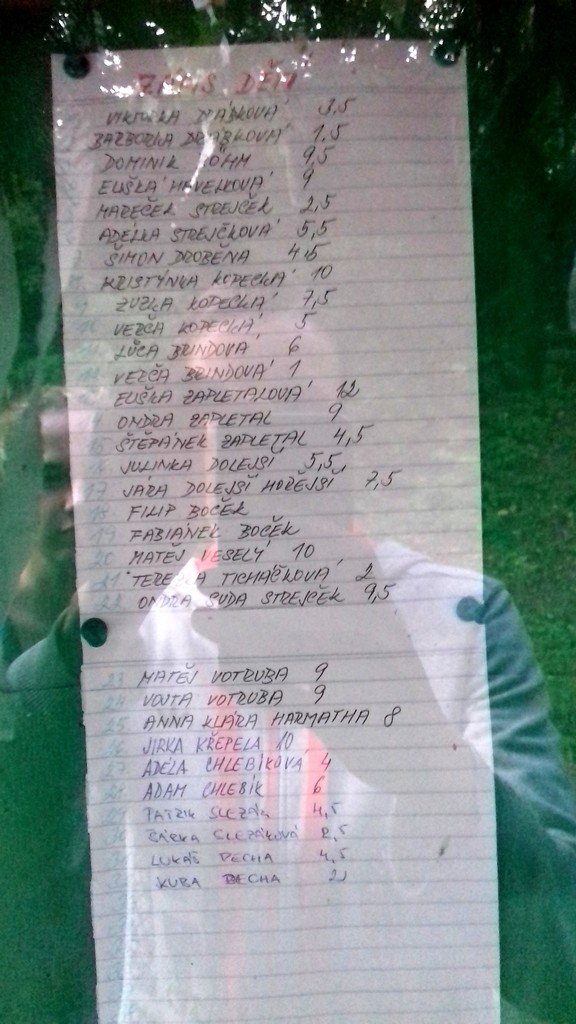 ZÁPIS DĚTÍ
VIKTORKA DRÁBKOVÁ 3,5
BARBORKA DRÁBKOVÁ 1,5
DOMINIK BÖHM 9,5
ELIŠKA HAVELKOVÁ 9
MAREČEK STREJČEK 2,5
ADÉLKA STREJČKOVÁ 5,5
ŠIMON DROBENA 4,5
8 KRISTÝNKA KOPECKÁ 10
9 ZUZKA KOPECKÁ 7,5
10 VERČA KOPECKÁ 5
LŮCA BRINDOVÁ 6
VERČA BRINDOVÁ 1
ELIŠKA ZAPLETALOVÁ 12
ONDRA ZAPLETAL 9
15 ŠTĚPÁNEK ZAPLETAL 4,5
16 JULINKA DOLEJŠÍ 5,5
17 JÁRA DOLEJŠÍ HOŘEJŠÍ 7,5
18 FILIP BOČEK
19 FABIÁNEK BOČEK
20 MATĚJ VESELÝ 10
21 TEREZKA TICHÁČKOVÁ 2
22 ONDRA SUDA STREJČEK 9,5
23 MATĚJ VOTRUBA 9
24 VOJTA VOTRUBA 9
25 ANNA KLÁRA HARMATHA 8
26 JIRKA KŘEPELA 10
27 ADÉLA CHLEBÍKOVÁ 4
28 ADAM CHLEBÍK 6
PATRIK SLEZÁK 4,5
SÁRKA SLEZÁKOVÁ 2,5
LUKÁŠ PECHA 4,5
KUBA PECHA 2